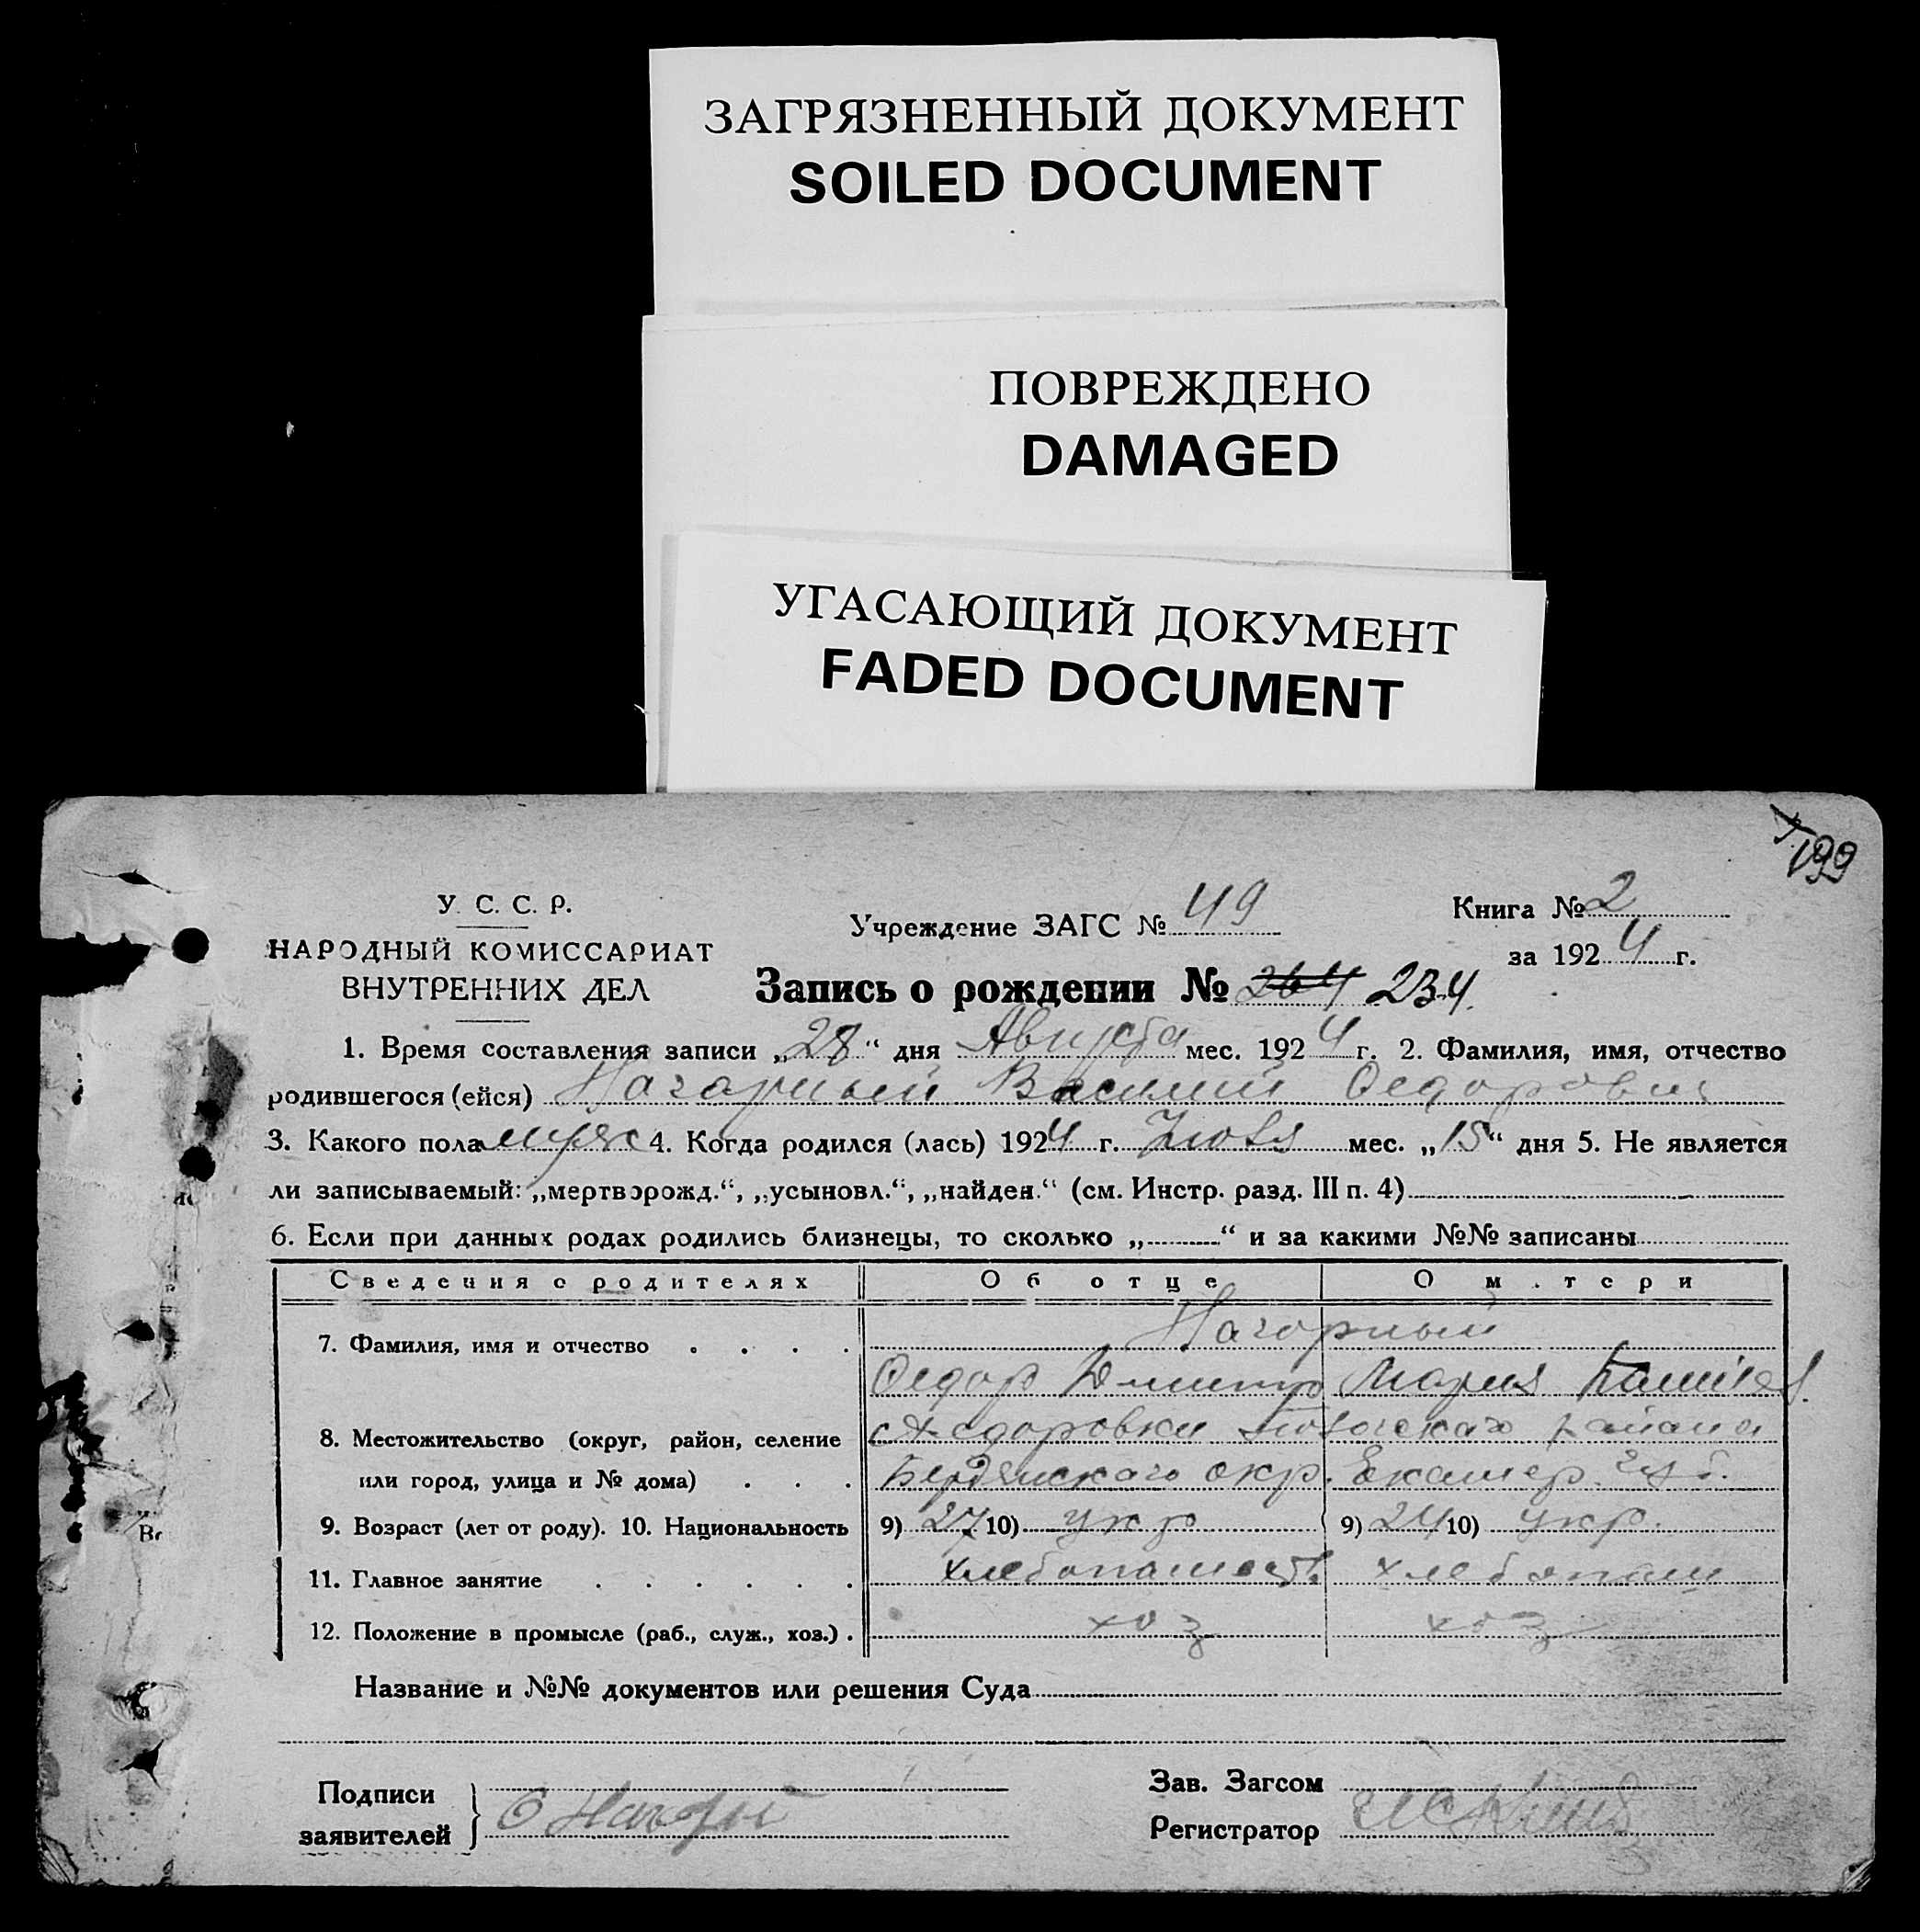 ЗАГРЯЗНЕННЫЙ ДОКУМЕНТ
SOILED DOCUMENT
ПОВРЕЖДЕНО
DAMAGED
УГАСАЮЩИЙ ДОКУМЕНТ
FADED DOCUMENT
199
У. С. С. Р.
НАРОДНЫЙ КОМИССАРИАТ
ВНУТРЕННИХ ДЕЛ
Учреждение ЗАГС № 49
Книга № 2
за 1924 г.
Запись о рождении № 264 234.
1. Время составления записи „28“ дня Августа мес. 1924 г. 2. Фамилия, имя, отчество
родившегося (ейся) Нагорный Василий Федорович
3. Какого пола муж 4. Когда родился (лась) 1924 г. Июля мес. „15“ дня 5. Не является
ли записываемый: „мертворожд.“, „усыновл.“, „найден.“ (см. Инстр. разд. III п. 4)
6. Если при данных родах родились близнецы, то сколько „ “ и за какими №№ записаны
Сведения о родителях Об отце О м.тери
7. Фамилия, имя и отчество Нагорный
Федор Дмитр Мария
8. Местожительство (округ, район, селение с Федоровки района
или город, улица и № дома) Бердянскаго окр. Екатер. губ.
9. Возраст (лет от роду). 10. Национальность 9) 27 10) укр 9) 24 10) укр.
11. Главное занятие хлебопашест. хлебопаш
12. Положение в промысле (раб., служ., хоз.) хоз хоз
Название и №№ документов или решения Суда
Подписи
заявителей
Зав. Загсом
Регистратор